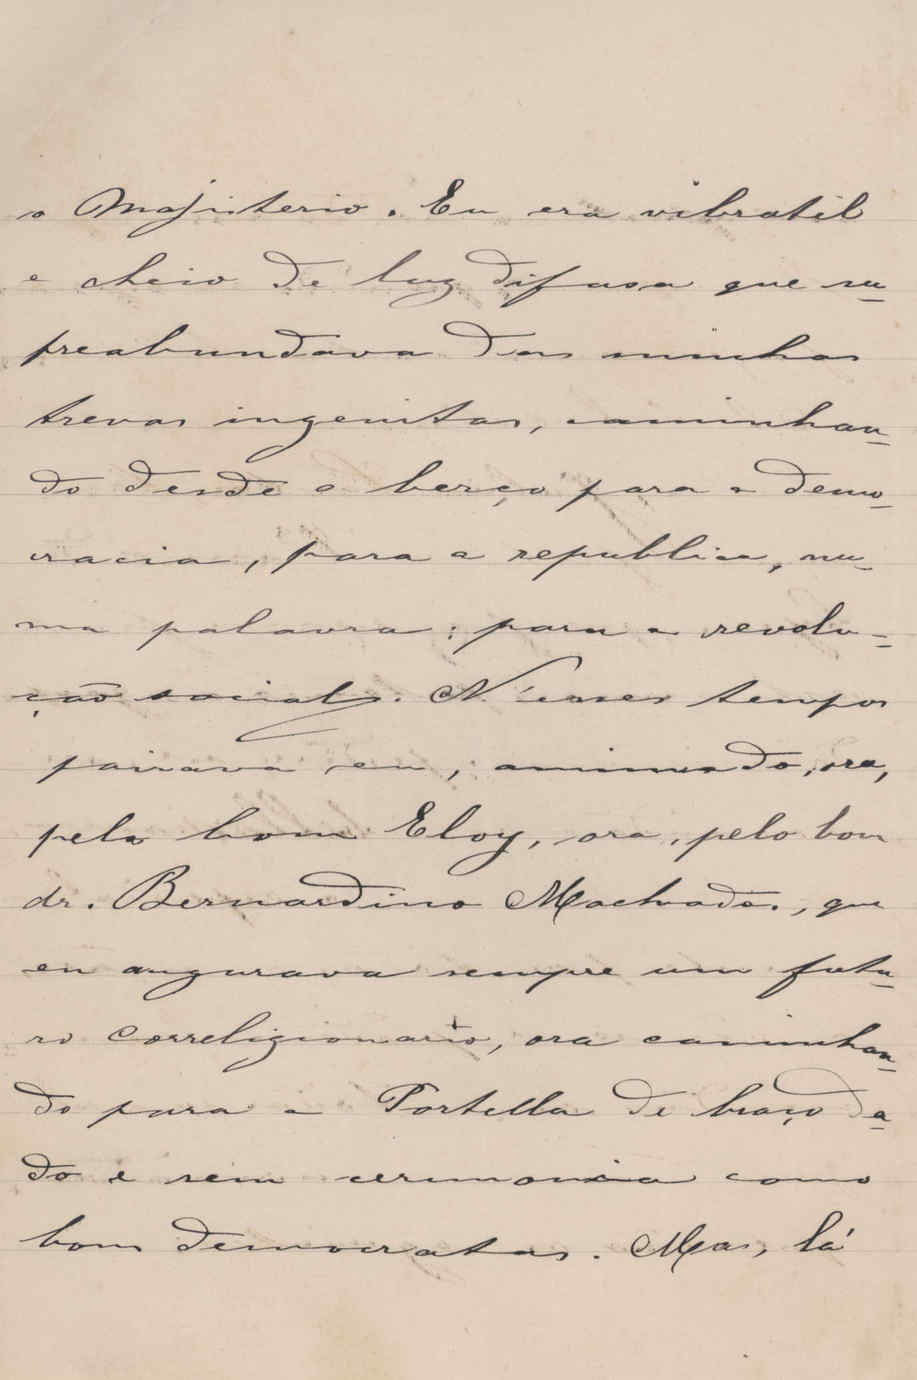 o Majisterio. Eu era vibratil
e cheio de luz difusa que su-
preabundava das minhas
trevas ingenitas, caminhan-
do desde o berço para a demo-
cracia, para a republica, nu-
ma palavra: para a revolu-
ção social. N'esses tempos
pairava eu, animado, ora,
pelo bom Eloy, ora, pelo bom
dr. Bernardino Machado, que
eu augurava sempre um futu-
ro correligionario, ora caminhan-
do para a Portella de braço da-
do e sem ceremonia como
bons democratas. Mas, lá